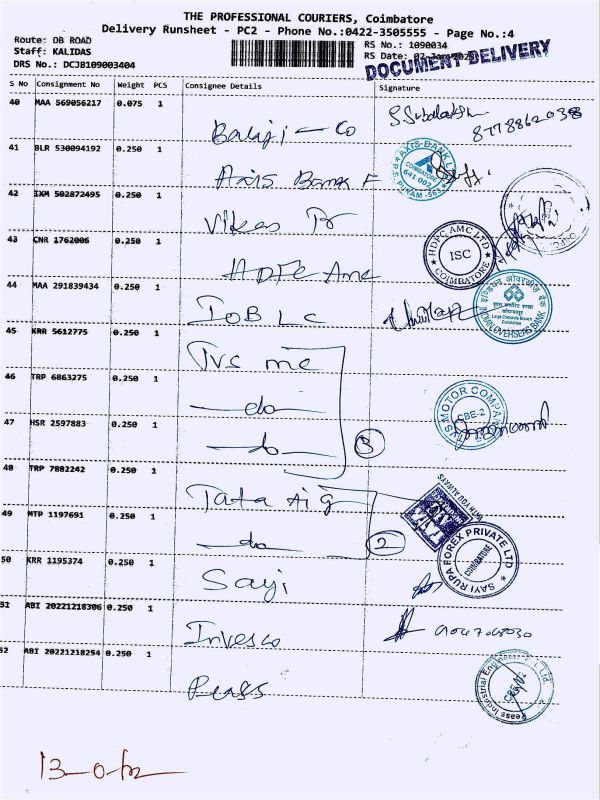 THE PROFESSIONAL COURIERS, Coimbatore
Delivery Runsheet - PC2 - Phone No.:0422-3505555 - Page No.:4
Route: OB ROAD
Staff: KALIDAS
DRS No.: DCJB109003404
RS No.: 1090034
RS Date: 02-Jan-2023
DOCUMENT DELIVERY
S No Consignment No Weight PCS Consignee Details Signature
40 MAA 569056217 0.075 1
Balaji - Co
8778862038
41 BLR 530094192 0.250 1
Axis Bank F
AXIS BANK
COIMBATORE
641 002
42 IXM 502872495 0.250 1
Vikas Tr
43 CNR 1762006 0.250 1
HDFC Amc
HDFC AMC LTD
ISC
COIMBATORE
44 MAA 291839434 0.250 1
IOB LC
इण्डियन ओवरसीज़ बैंक
INDIAN OVERSEAS BANK
45 KRR 5612775 0.250 1
Tvs mc
46 TRP 6863275 0.250 1
do
MOTOR COMPANY
CBE-2
47 HSR 2597883 0.250 1
do
3
48 TRP 7882242 0.250 1
Tata Aig
WITH YOU ALWAYS
49 MTP 1197691 0.250 1
do
2
SAYI RUPA FOREX PRIVATE LTD
COIMBATORE
50 KRR 1195374 0.250 1
Sayi
51 ABI 20221218306 0.250 1
Invesco
52 ABI 20221218254 0.250 1
Peass
Peass Industrial Engineers P Ltd